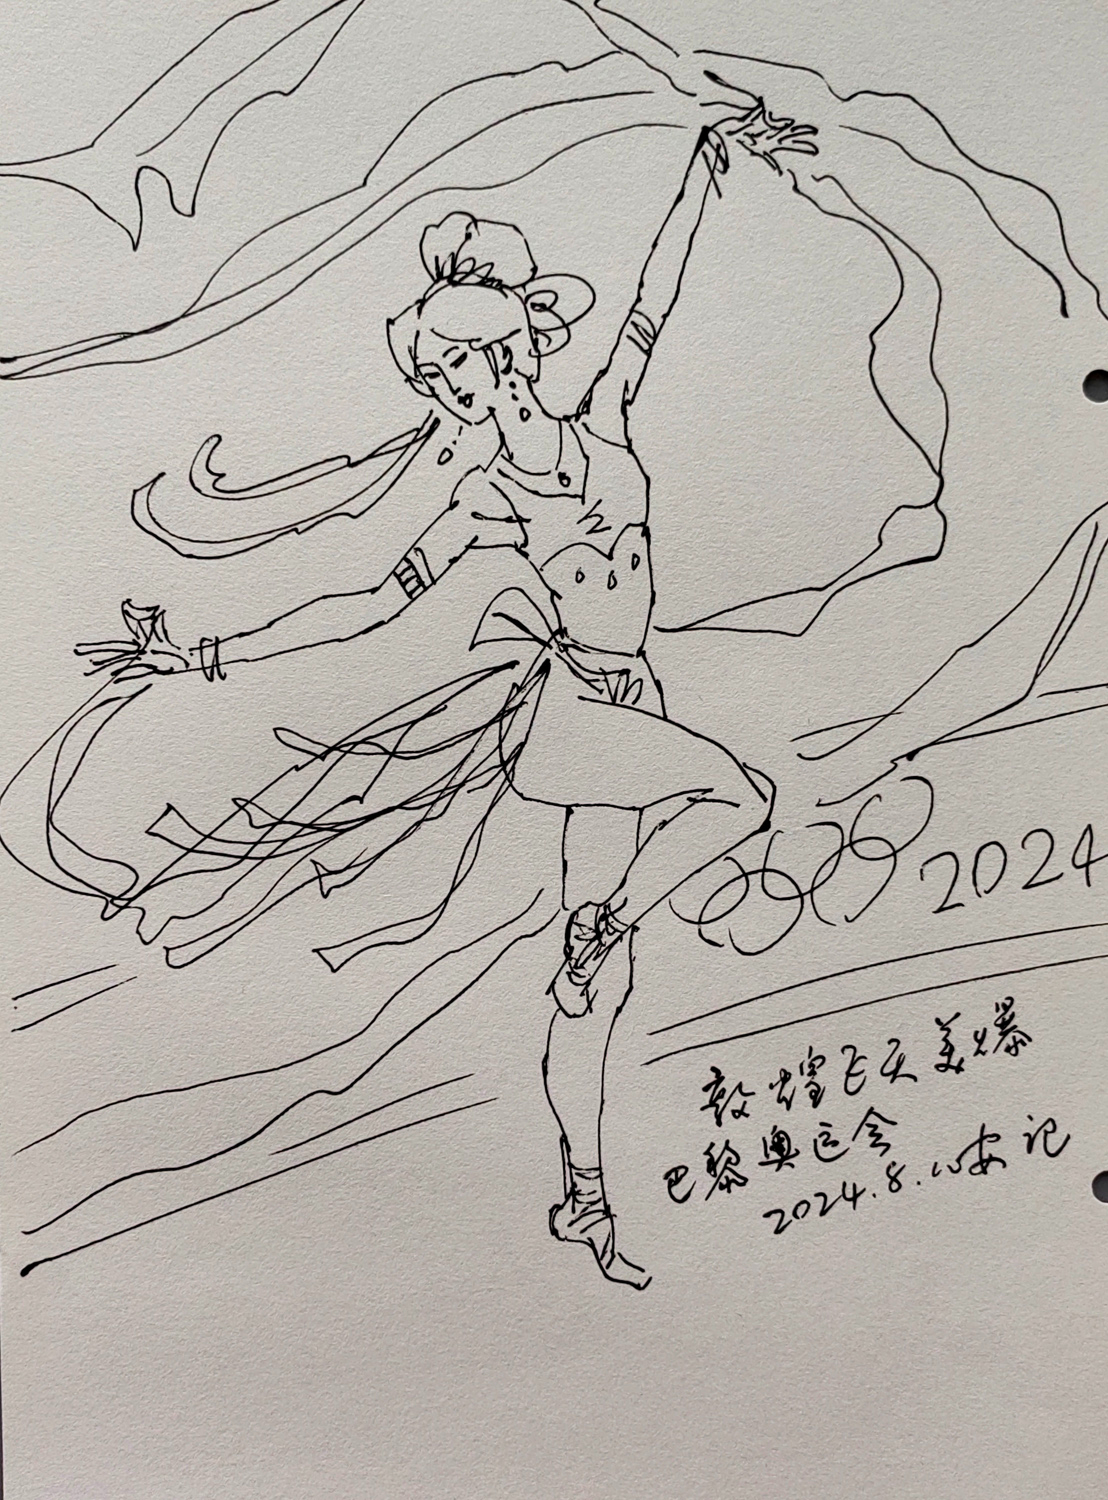 2024
敦煌飞天美爆
巴黎奥运会
2024.8.10安记